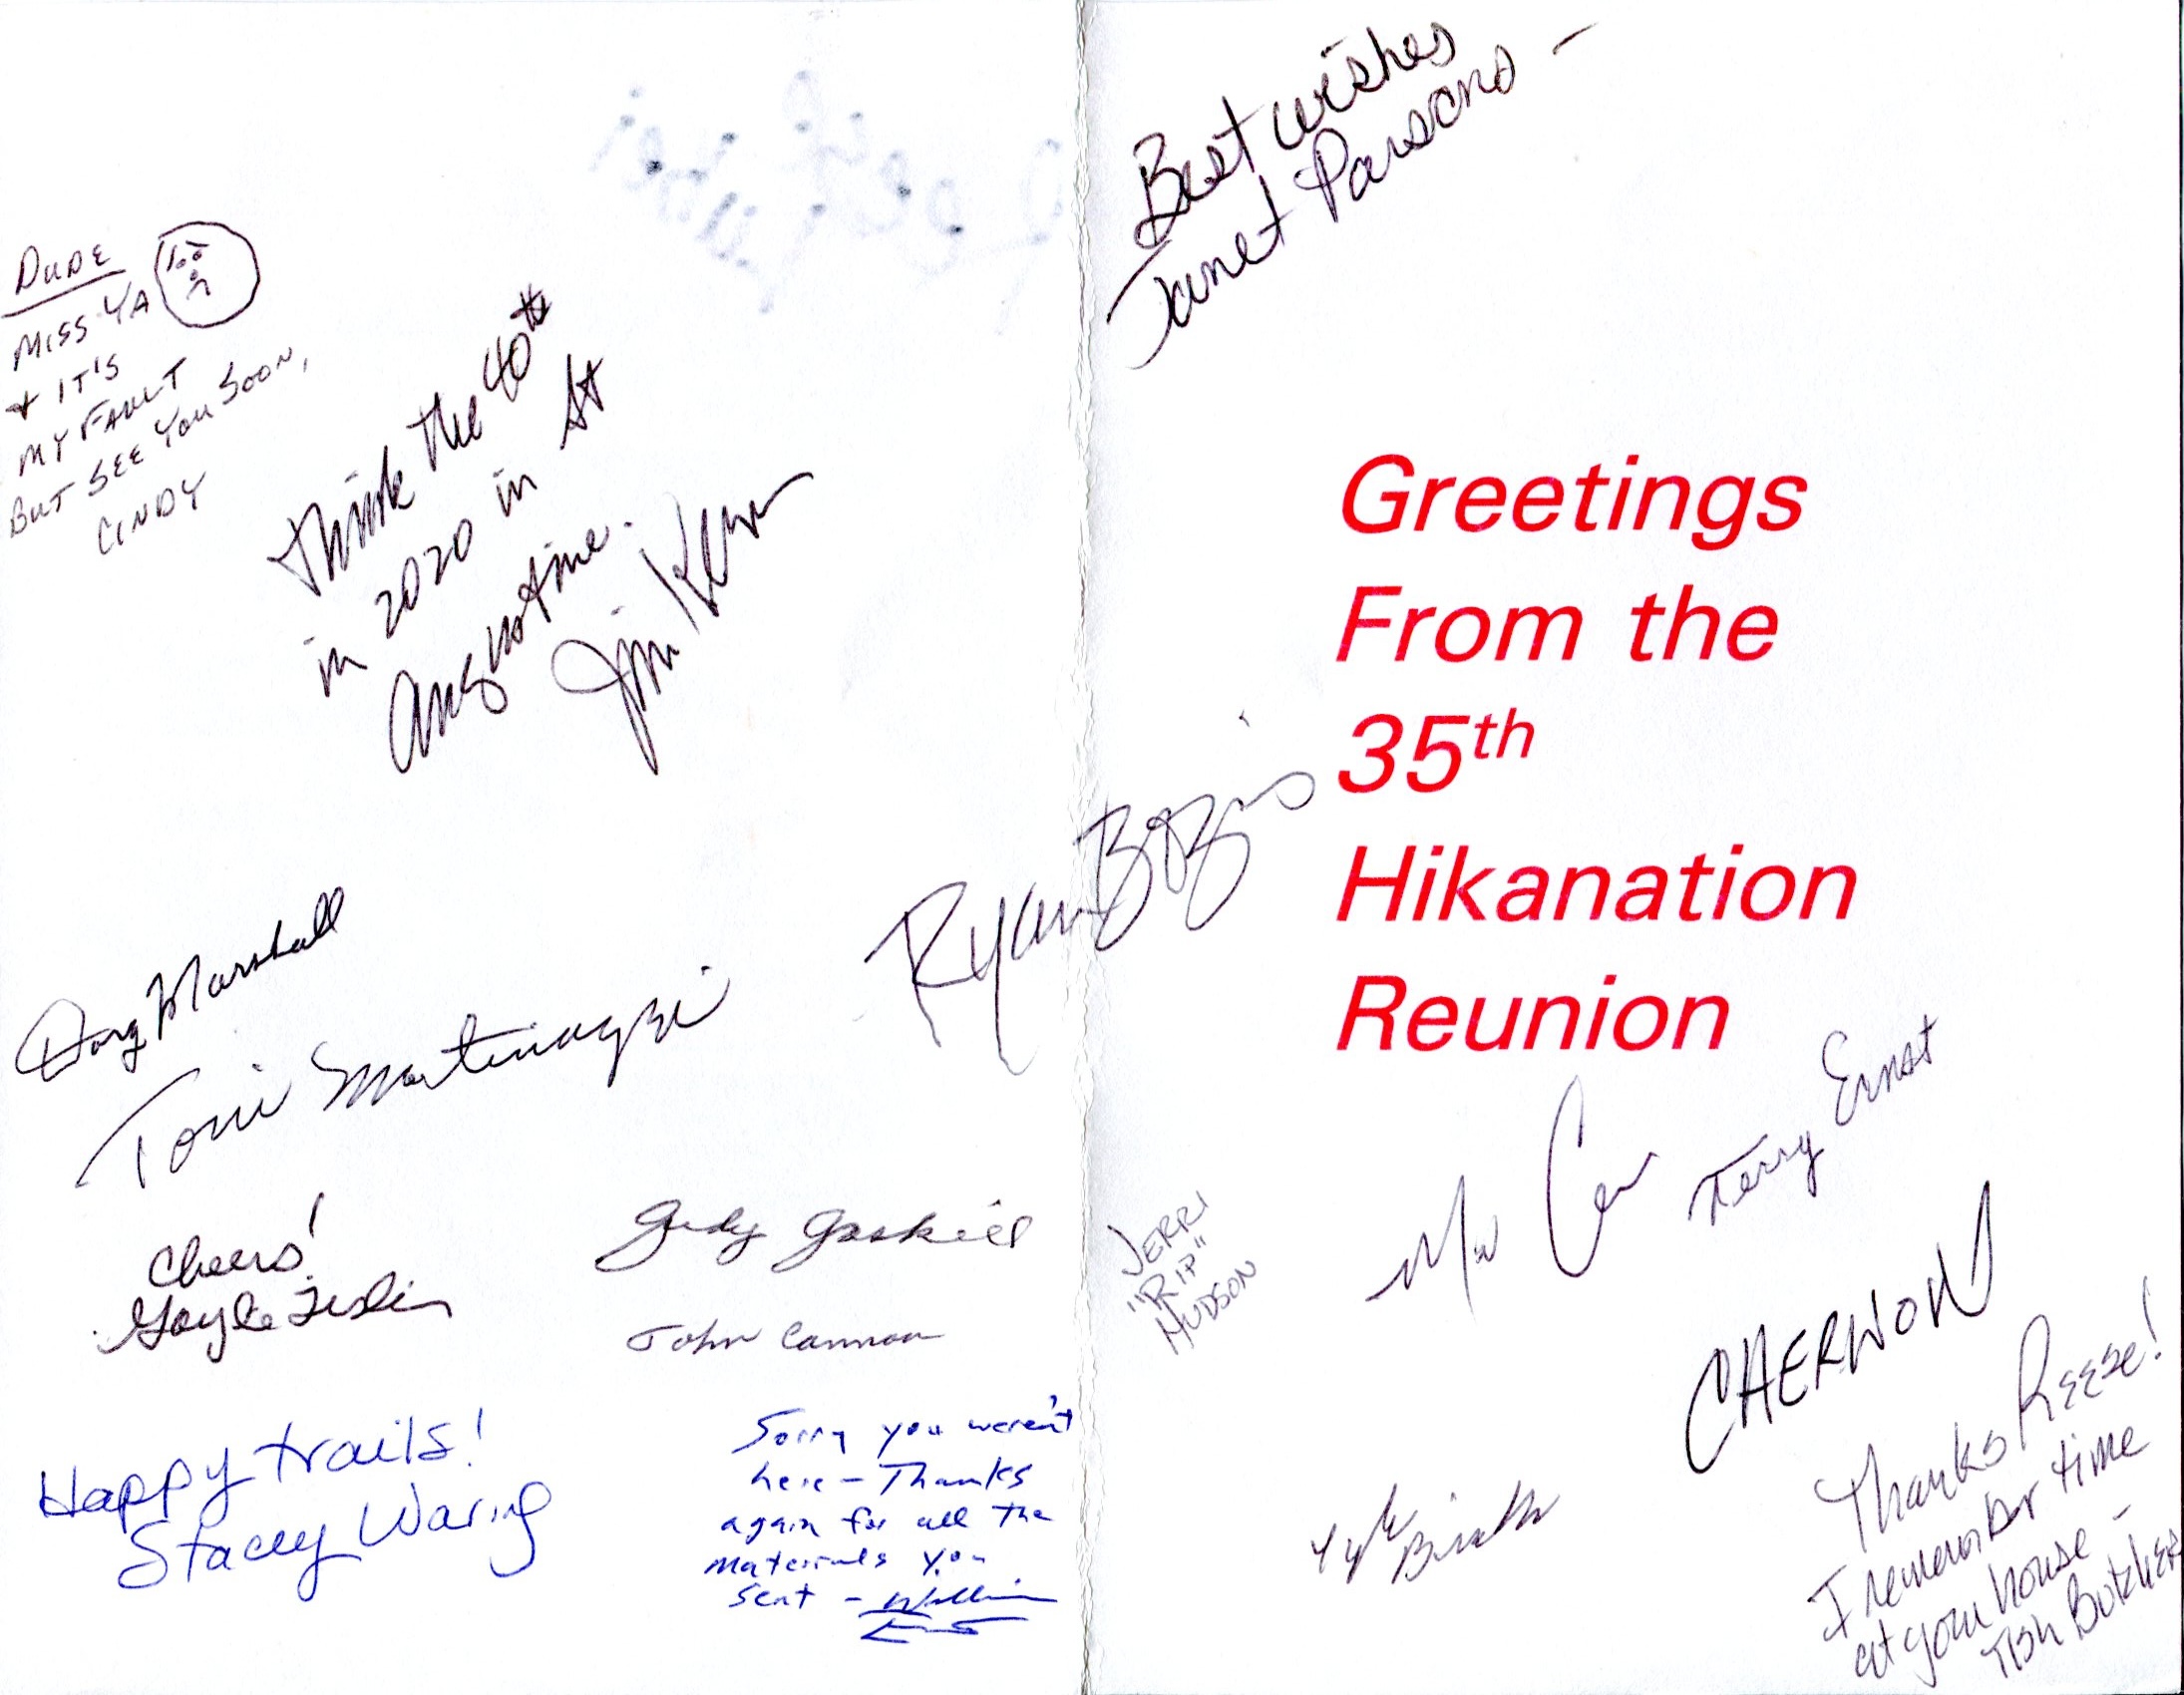 DUDE
MISS YA
+ IT'S
MY FAULT
BUT SEE YOU SOON,
CINDY
Think the 40th
in 2020 in St
Augustine.
Jim Kern
Doug Marshall
Toni
Cheers!
Gayle
Judy Gaskill
John Cannon
Happy trails!
Stacey Waring
Sorry you weren't
here - Thanks
again for all the
materials you
sent -
Best wishes
Janet Parsons -
Greetings
From the
35th
Hikanation
Reunion
Ryan
Terry Ernst
JERRI
"RIP"
HUDSON
CHERNOW
Thanks Reese!
I remember time
at your house -
Tish Butcher